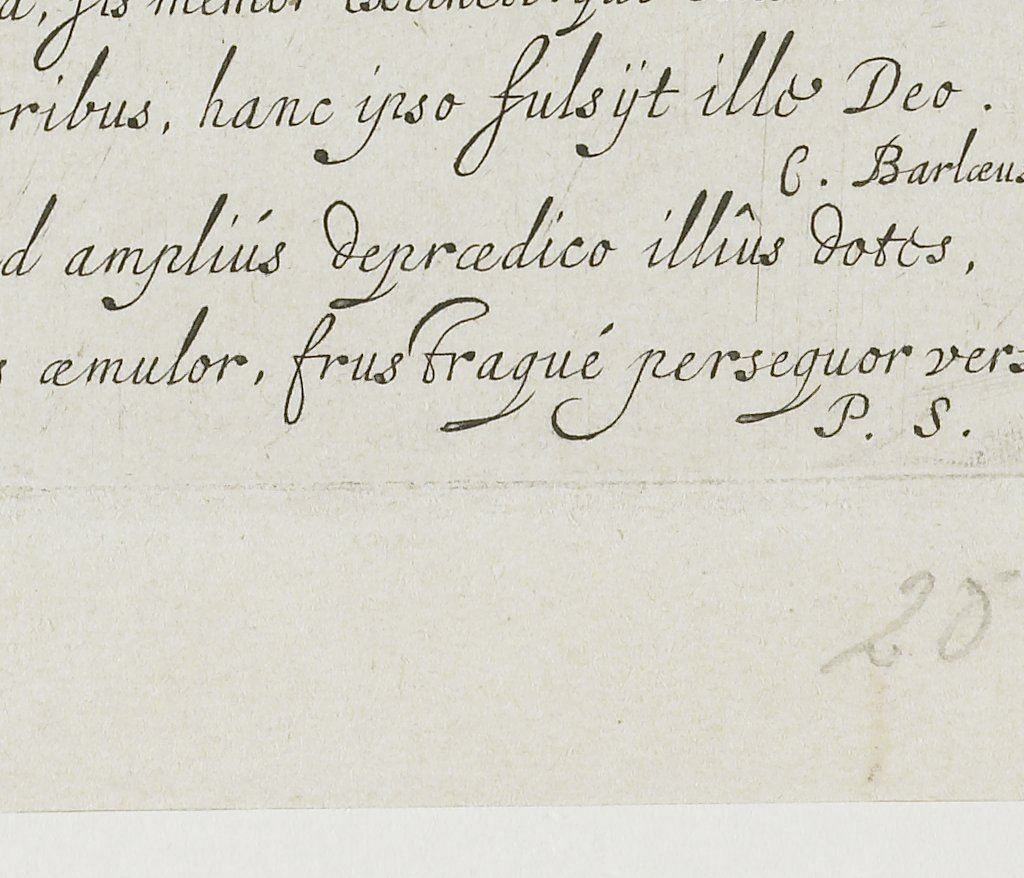 sis memor
oribus, hanc ipso fulsijt ille Deo.
C. Barlæus
d ampliús deprædico illîus dotes,
s æmulor, frustraqué persequor vers
P. S.
20